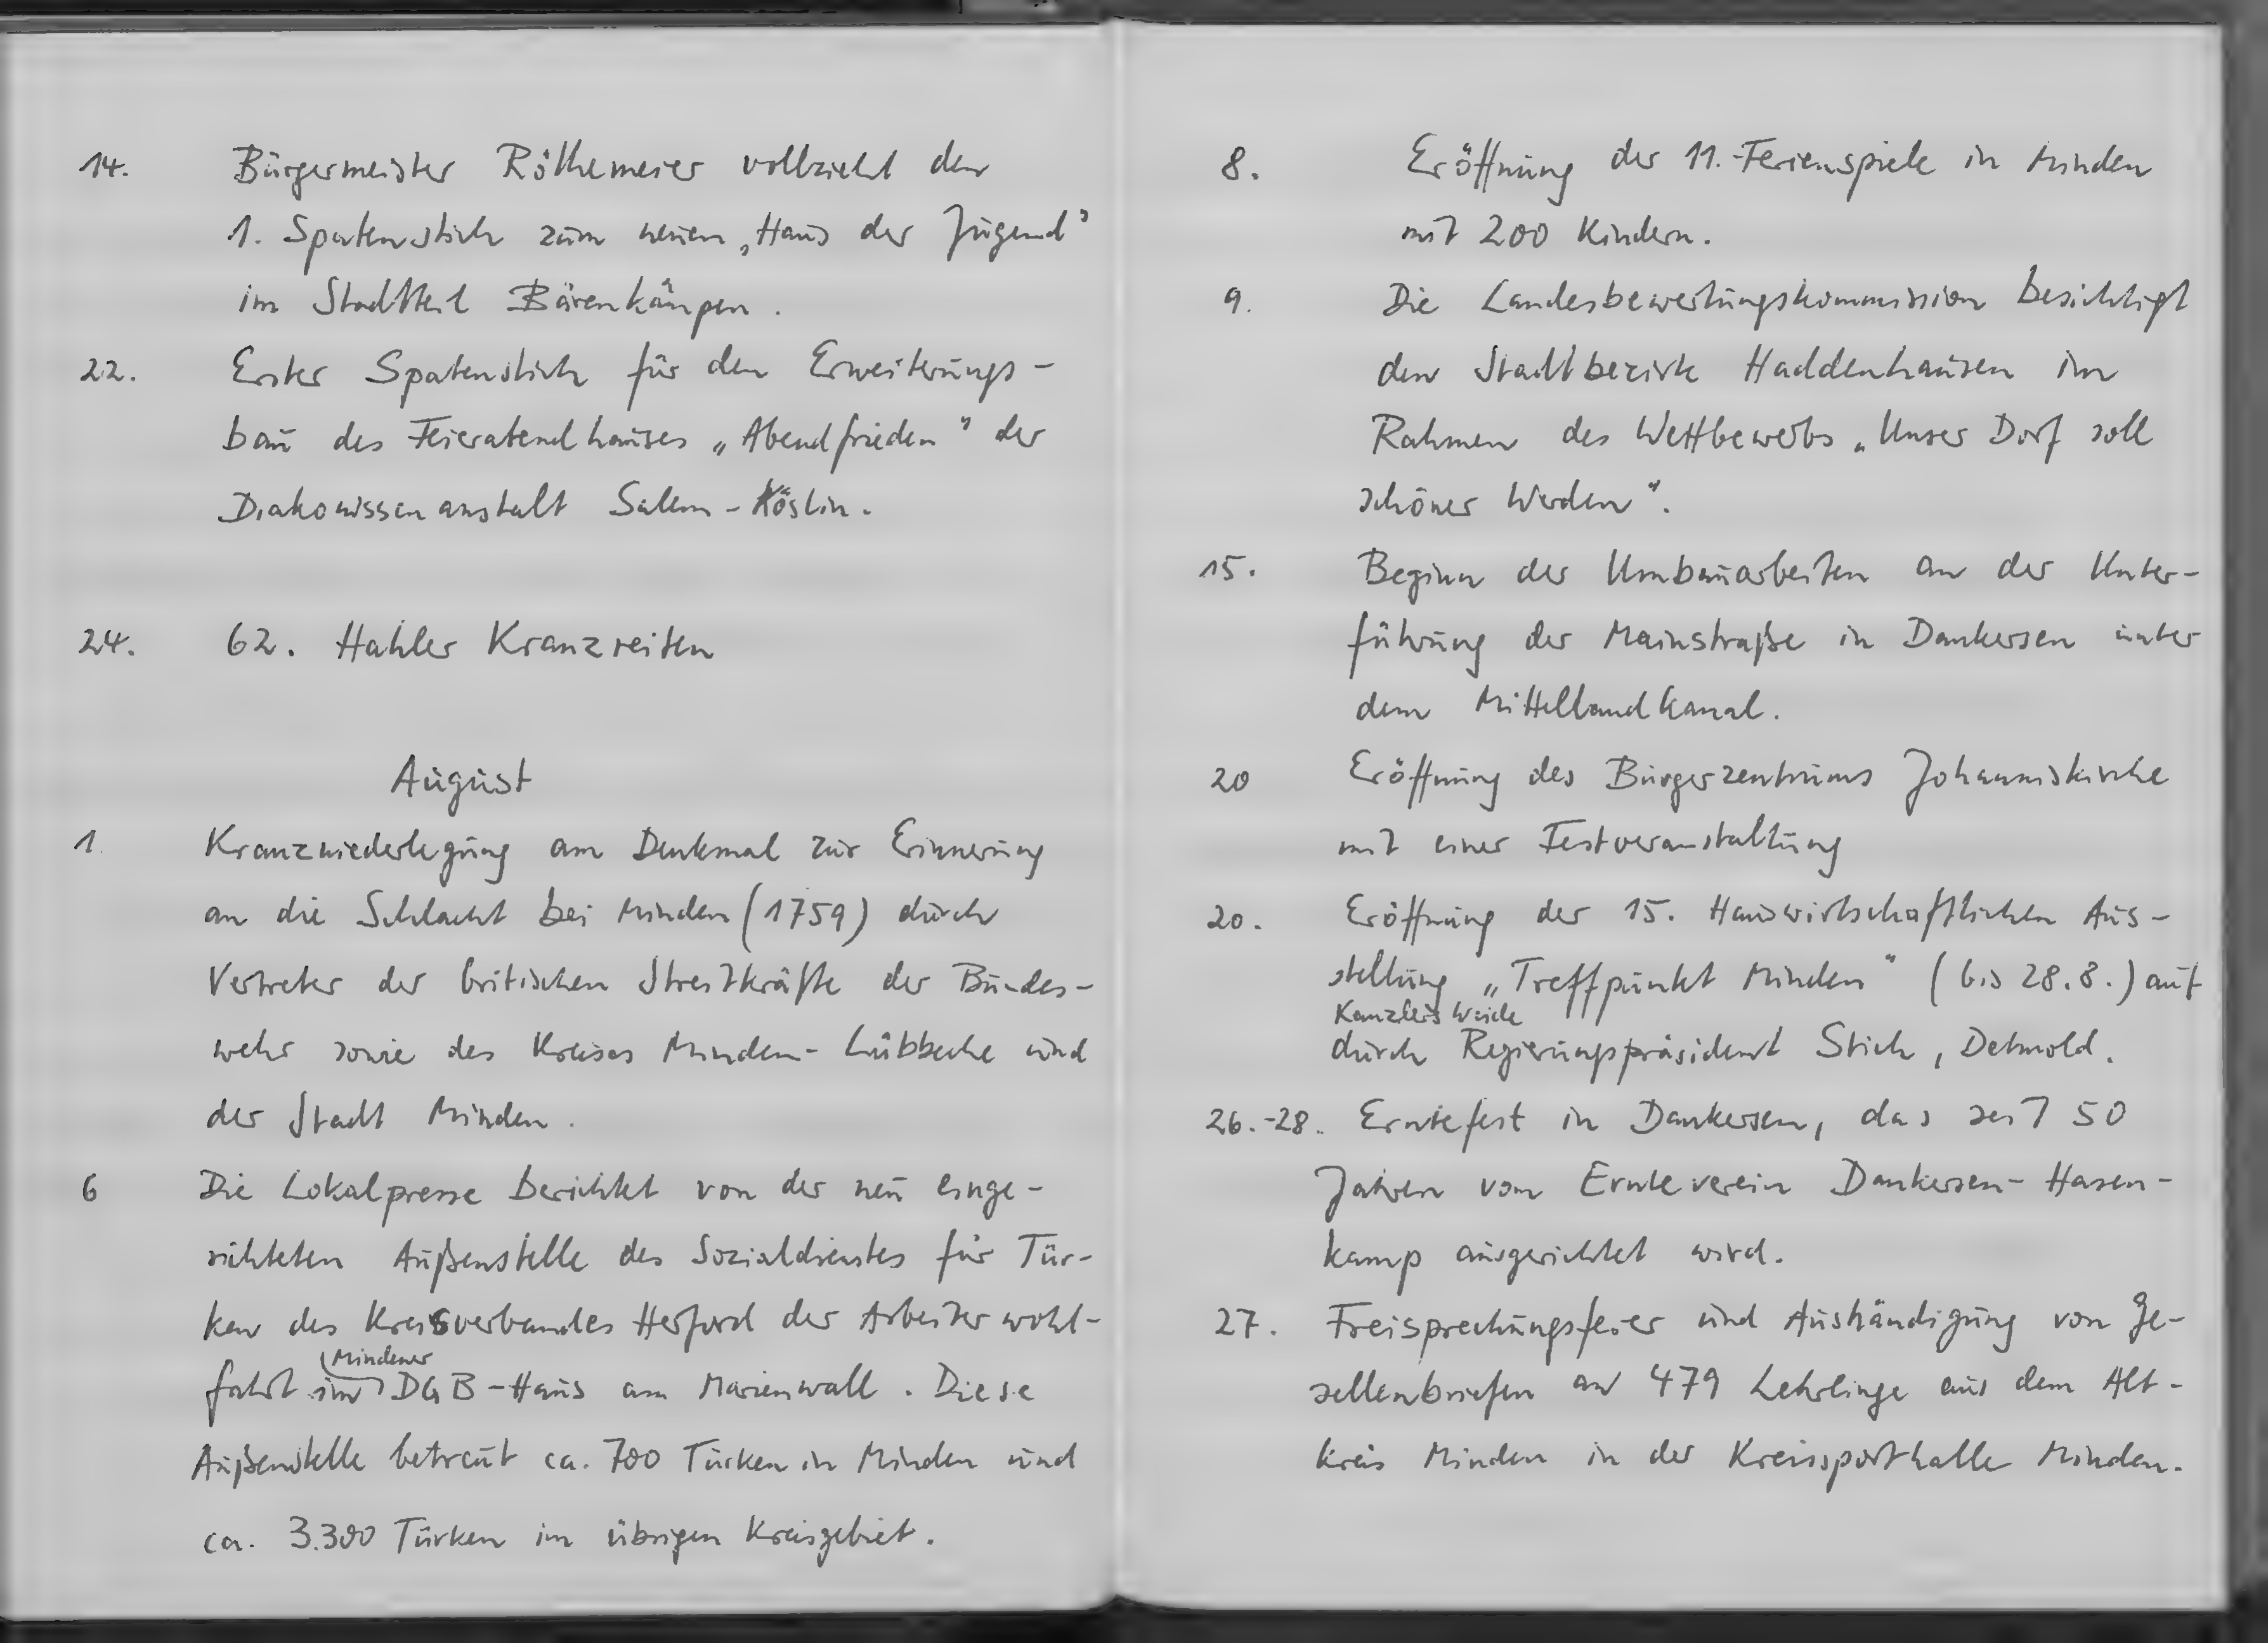 14. Bürgermeister Röthemeier vollzieht den
1. Spatenstich zum neuen „Haus der Jugend"
im Stadtteil Bärenkämpen.
22. Erster Spatenstich für den Erweiterungs-
bau des Feierabendhauses „Abendfrieden" der
Diakonissenanstalt Salem-Köslin.
24. 62. Hahler Kranzreiten
August
1. Kranzniederlegung am Denkmal zur Erinnerung
an die Schlacht bei Minden (1759) durch
Vertreter der britischen Streitkräfte der Bundes-
wehr sowie des Kreises Minden-Lübbecke und
der Stadt Minden.
6 Die Lokalpresse berichtet von der neu einge-
richteten Außenstelle des Sozialdienstes für Tür-
ken des Kreisverbandes Herford der Arbeiterwohl-
fahrt im Mindener DGB-Haus am Marienwall. Diese
Außenstelle betreut ca. 700 Türken in Minden und
ca. 3.300 Türken im übrigen Kreisgebiet.
8. Eröffnung der 11. Ferienspiele in Minden
mit 200 Kindern.
9. Die Landesbewertungskommission besichtigt
den Stadtbezirk Haddenhausen im
Rahmen des Wettbewerbs „Unser Dorf soll
schöner werden".
15. Beginn der Umbauarbeiten an der Unter-
führung der Mainstraße in Dankersen unter
dem Mittellandkanal.
20 Eröffnung des Bürgerzentrums Johanniskirche
mit einer Festveranstaltung
20. Eröffnung der 15. Hauswirtschaftlichen Aus-
stellung „Treffpunkt Minden" (bis 28.8.) auf
Kanzlers Weide
durch Regierungspräsident Stich, Detmold.
26.-28. Erntefest in Dankersen, das seit 50
Jahren vom Ernteverein Dankersen-Hasen-
kamp ausgerichtet wird.
27. Freisprechungsfeier und Aushändigung von Ge-
sellenbriefen an 479 Lehrlinge aus dem Alt-
kreis Minden in der Kreissporthalle Minden.